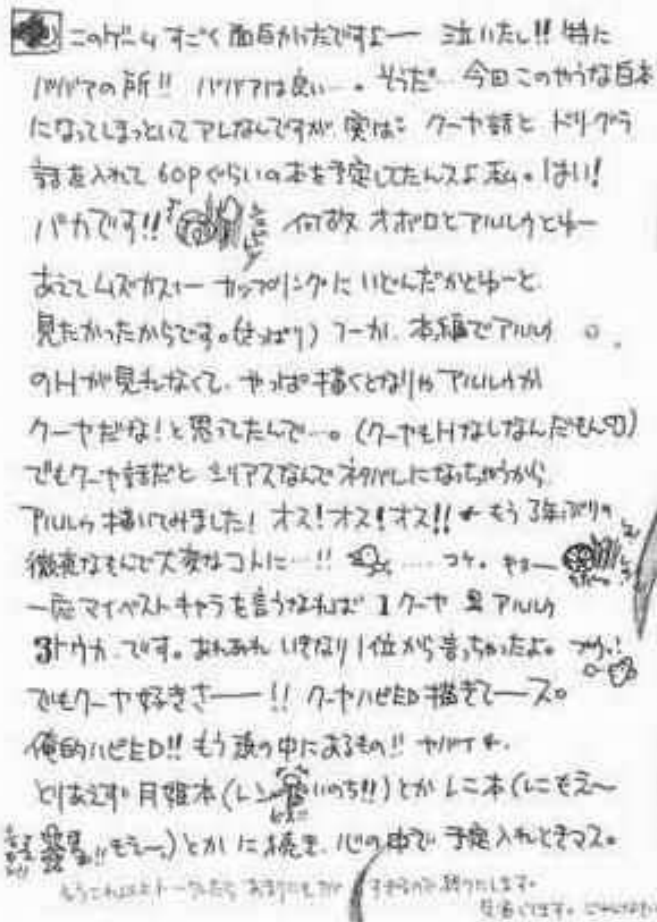 このゲームすごく面白かったですよー 泣いたし!! 特に
ババアの所!! ババアは良い…。そうだ… 今回このやうな白本
になってしまっといてアレなんですが、実は: クーヤ話とドリグラ
話を入れて 60Pぐらいの本を予定してたんスよ私。はい!
バカです!! 何故 オボロとアルルゥとゆー
あえてムズカスィー カップリングにいどんだかとゆーと、
見たかったからです。(さっぱり) つーか、本編でアルルゥ
のHが見れなくて、やっぱ描くとなりゃアルルゥか
クーヤだな!と思ってたんで…。(クーヤもHなしなんだもん)
でもクーヤ話だとシリアスなんでネタバレになっちゃうから、
アルルゥ描いてみました! オス!オス!オス!! ←もう3年ぶりの
徹夜なもんで大変なコトに…!! ……コケ。
一応マイベストキャラを言うなれば 1クーヤ 2アルルゥ
3トウカ です。あれあれ いきなり1位から言っちゃったよ。
でもクーヤ好きさー!! クーヤハピED描きてース。
俺的ハピED!! もう頭の中にあるもの!! ヤバイ
とりあえず 月姫本(レン いのち!!)とか レニ本(レニもえ〜
もえ〜)とか に続き、心の中で予定入れときマス。
もうこれ以上トークしたら 終りにします。